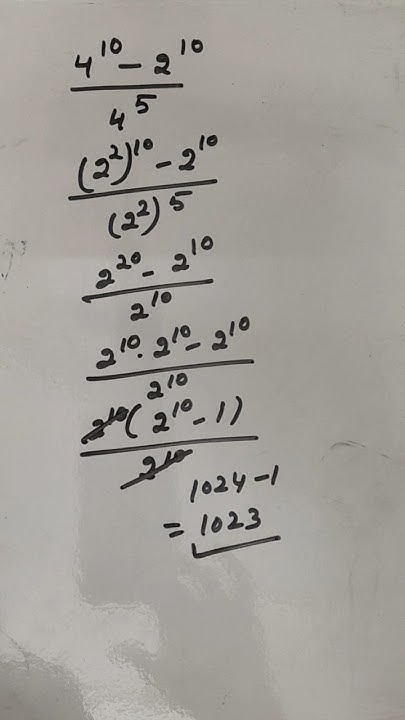 4^10 - 2^10
4^5
(2^2)^10 - 2^10
(2^2)^5
2^20 - 2^10
2^10
2^10 · 2^10 - 2^10
2^10
2^10 ( 2^10 - 1)
2^10
1024 - 1
= 1023